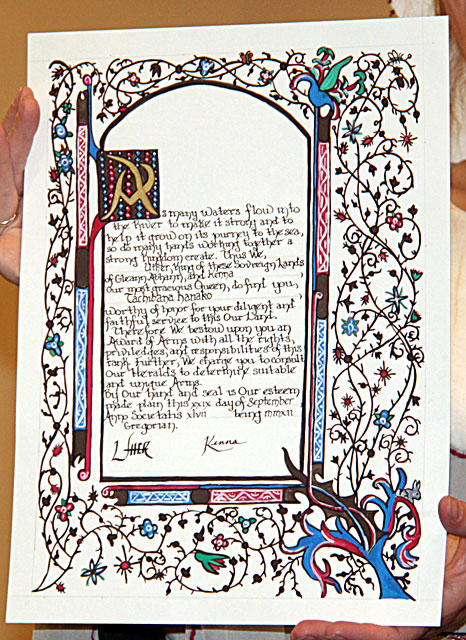 As many waters flow into
the River to make it strong and to
help it grow on its journy to the sea,
so do many hands working together a
strong Kingdom create. Thus We,
Ulfer, King of these Sovereign Lands
of Gleann Abhann, and Kenna
Our most graceous Queen, do find you,
Tachibana Hanako
worthy of honor for your diligent and
faithful service to this Our Land.
Therefore We bestow upon you an
Award of Arms with all the rights,
priviledges, and responsibilities of this
rank. Further, We charge you to consult
Our Heralds to determine suitable
and unique Arms.
By Our hand and seal is Our esteem
made plain this xxix day of September
Anno Societatis xlvii being mmxii
Gregorian.
Kenna